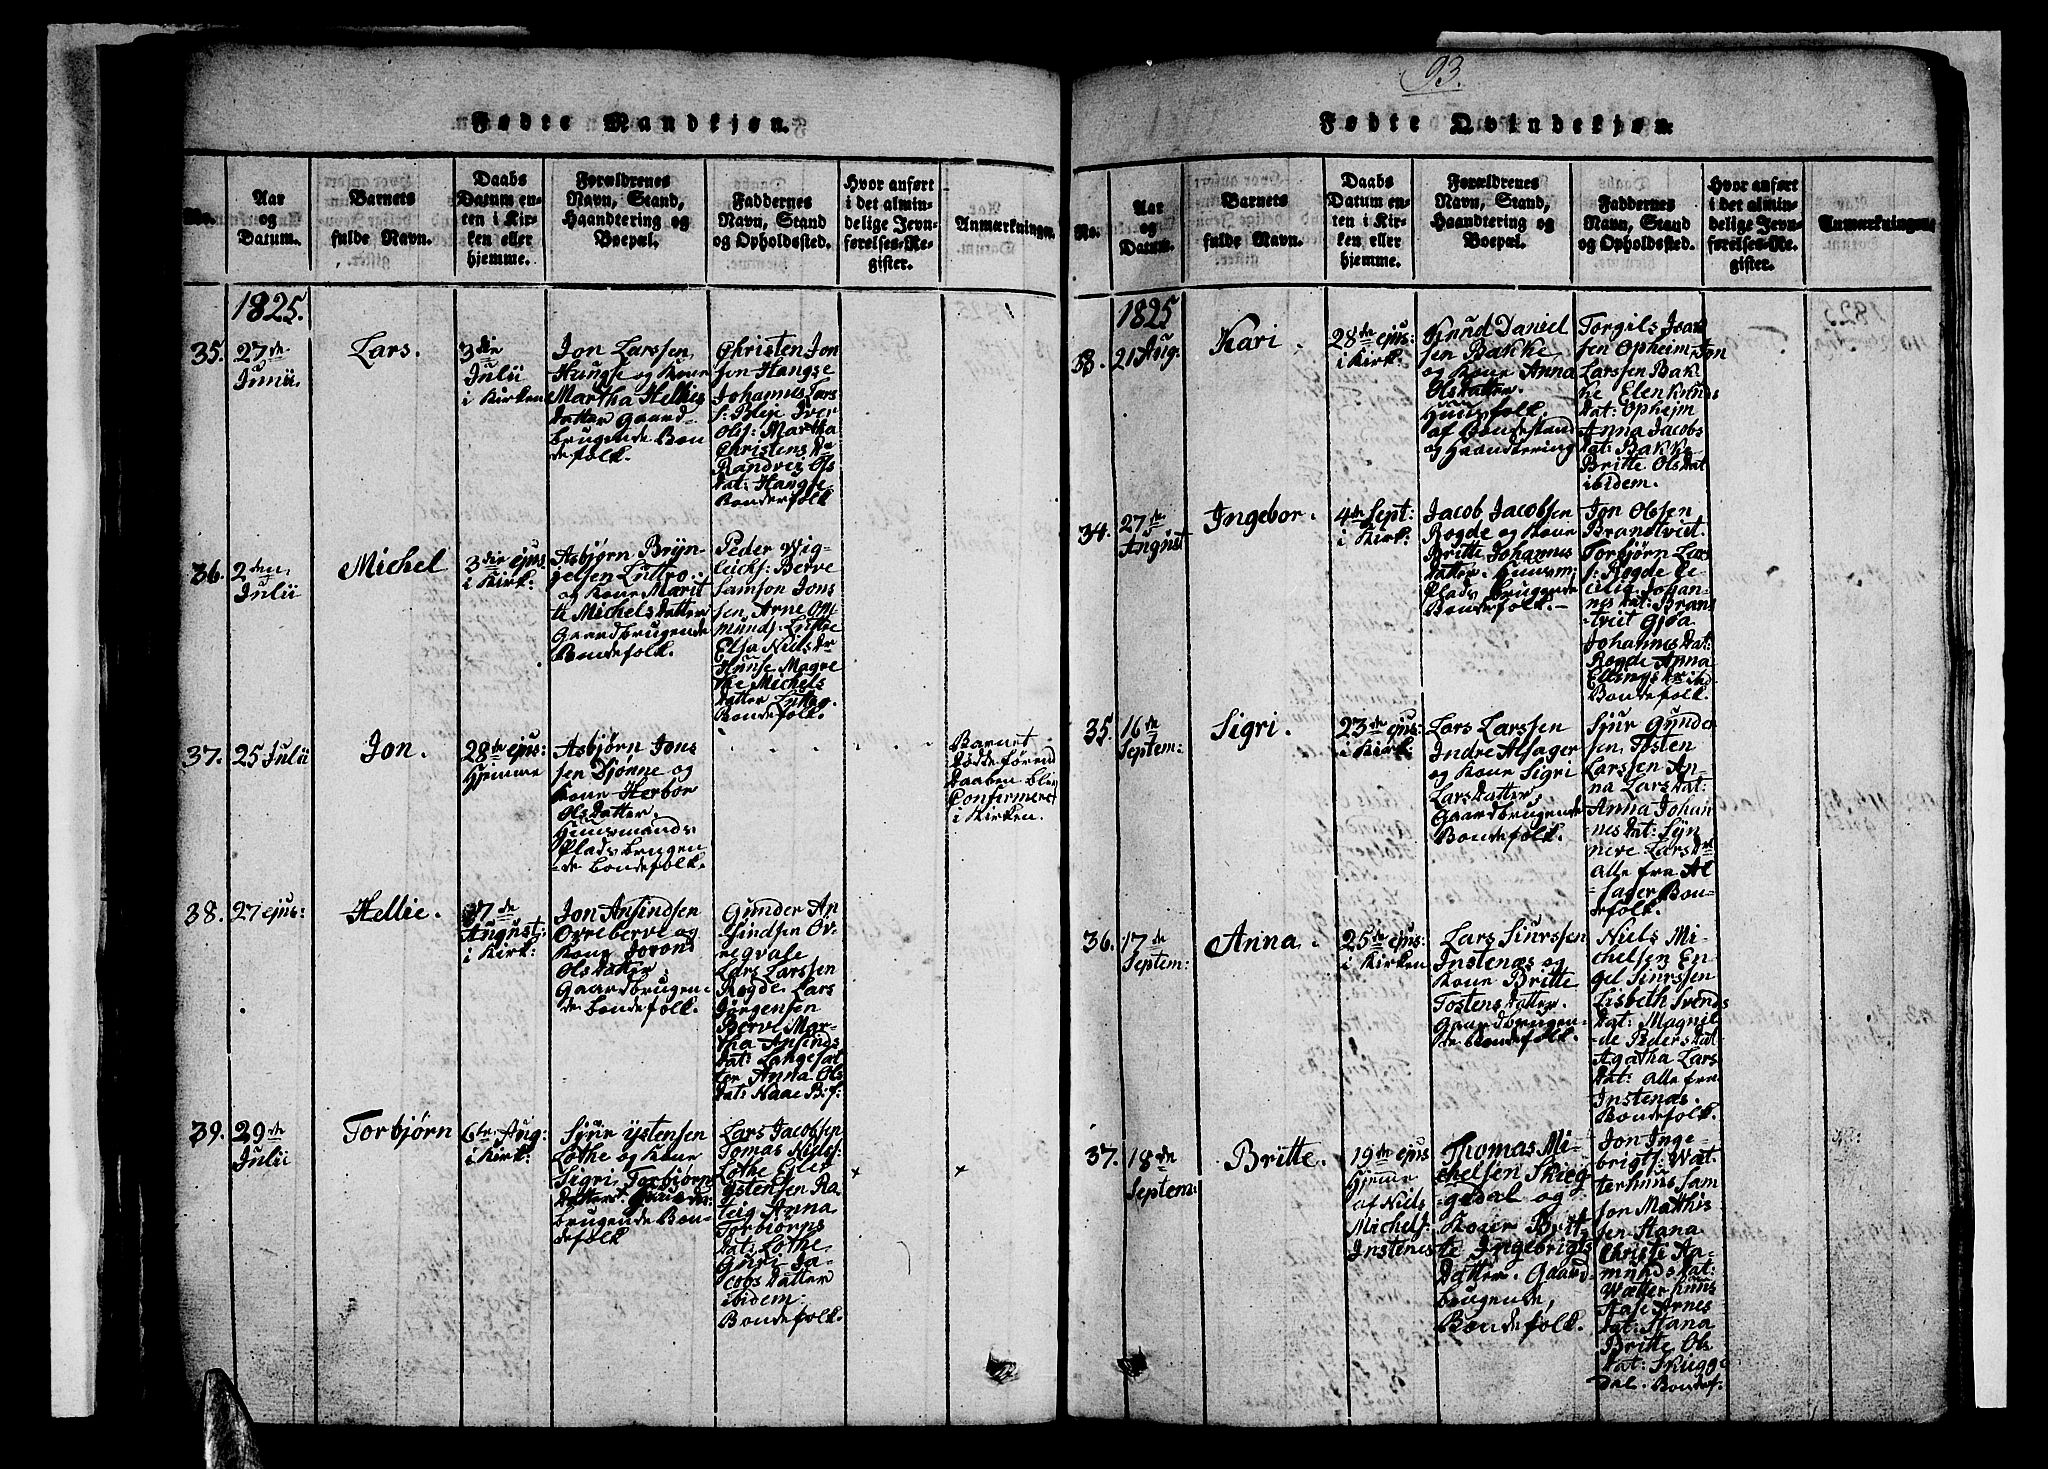 Fødte Mandkjøn.
No.
Aar
og
Datum.
Barnets
fulde Navn.
Daabs
Datum en-
ten i Kir-
ken eller
hjemme.
Forældrenes
Navn, Stand,
Haandtering og
Boepæl.
Faddernes
Navn, Stand
og Opholdssted.
Hvor anført
i det almin-
delige Jevn-
førelses-Re-
gister.
Anmærkninger.
1825.
35.
27de
Junii
Lars.
3die
Julii
i Kirken
Jon Larssen
Haugse og Kone
Martha Hellies
datter Gaard-
brugende Bon
defolk.
Christen Jon
sen Haugse
Johannes Lars
s: Bleje Iver
Ols: Martha
Christens D.
Randvei Ols
dat: Haugse
Bondefolk
36.
2den
Julii
Michel
3die ejus
i Kirk:
Asbjørn Bryn-
gelsen Lutro
og Kone Marit
te Michelsdatter
Gaardbrugende
Bondefolk.
Peder Wig-
leiks: Berve
Samson Jons
sen, Arne Om
munds. Lutro
Elsa Niels dr
Hunse Magre
the Michels
datter Lutro.
Bondefolk.
37.
25 Julii
Jon.
28de ejus:
hjemme
Asbjørn Jons
sen Djønne og
Kone Herbor
Olsdatter.
Huusmands-
Plads brugen
-de bondefolk.
Barnet
døde førend
daaben blev
Confirmeret
i Kirken.
38.
27 ejus:
Hellie.
7de
August:
i Kirk:
Jon Ansindsen
Ovreberve og
Kone Joron
Olsdatter
Gaardbrugen-
de bondefolk.
Gunder An
sindsen Ov-
regvale
Lars Larssen
Rogde Lars
Jørgensen
Berve Mar-
tha Ansinds
dat: Langesat
ter Anna Ols
dat: Naae B:f:
39.
29de
Julii
Torbjørn
6te Aug:
i Kirk:
Sjur Ystensen
Lothe og Kone
Sigri Torbjørn
datter Gaard
brugende Bon-
defolk
Lars Jacobsen
Tomas Niels:
Lothe Eiler
Ystensen Ra-
teig Anna
Torbjørns
dat: Lothe
Guri Ja-
cobsdatter
ibidem:
Bondefolk.
93.
Fødte Qvindekjøn.
No.
Aar
og
Datum.
Barnets
fulde Navn.
Daabs
Datum en-
ten i Kir-
ken eller
hjemme.
Forældrenes
Navn, Stand,
Haandtering og
Boepæl.
Faddernes
Navn, Stand
og Opholdssted.
Hvor anført
i det almin-
delige Jevn-
førelses-Re-
gister.
Anmærkninger.
1825
33.
21 Aug:
Kari.
28de ejus:
i Kirk:
Knud Daniel
sen Bakke
og Kone Anna
Olsdatter.
Huusfolk.
af Bondestand
og Haandtering
Torgils Joa
sen Opheim, Jon
Larssen Bak
ke Elen Knuds
dat: Opheim
Anna Jacobs
dat: Bakke
Britte Olsdat
ibidem.
34.
27de
August
Ingebor.
4de Sept:
i Kirk:
Jacob Jacobsen
Rogde og Kone
Britte Johannes
datter. Huusm:
Plads brugende
Bondefolk.-
Jon Olsen
Brandtveit.
Torbjørn Lars
s: Rogde Ce-
cilia Johan-
nesdat: Brand
-tveit Gjøa
Johannesdat:
Rogde Anna
Ellings dr ibid
Bondefolk.
35.
16de
Septem:
Sigri.
23de ejus:
i Kirk:
Lars Larssen
Indre Alsager
og Kone Sigri
Larsdatter
Gaardbrugende
Bondefolk.
Sjur Gunder
sen, Tosten
Larssen An-
na Larsdat:
Anna Johan
nesdat: Syn
neve Lars dr
Alle fra Al
-sager Bon-
defolk.
36.
17de
Septem:
Anna.
25de ejus:
i Kirken
Lars Siurssen
Instenæs og
Kone Britte
Tostensdatter.
Gaardbrugen-
de bondefolk.
Niels Mi-
chelsen En-
gel Siurssen
Lisbeth Svends
dat: Magnil
-de Pedersdat
Agatha Lars
dat: Alle fra
Instenæs.
Bondefolk.
37.
18de
Septem:
Britte.
19de ejus
hjemme
af Niels
Michels:
Instenes
Thomas Mi-
chelsen Skieg
-gedal og
Kone Britt
te Ingebrigts
datter. Gaard
brugende,
Bondefolk.
Jon Inge-
brigts: Wæt-
terhuus Sam
son Mathis
sen Hana
Christe Aa-
mundsdat:
Wætterhuus
Aase Arnes
dat: Hana
Britte Ols
dat: Skiegge
dal. Bondef: